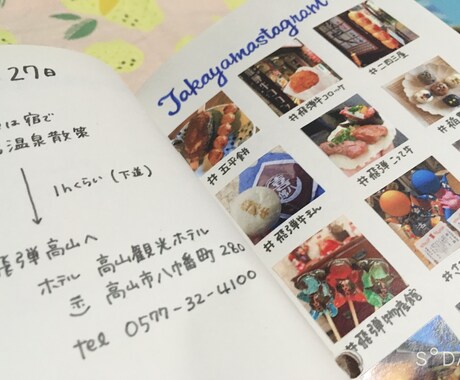 27日
は宿で
温泉散策
1hくらい (下道)
飛彈高山へ
ホテル 高山観光ホテル
高山市八幡町 280
tel 0577-32-4100
Takayamastagram
#飛彈牛コロケ
#二四三屋
#五平餅
#飛彈こって牛
#飛彈牛まん
#飛彈物産館
S°DA